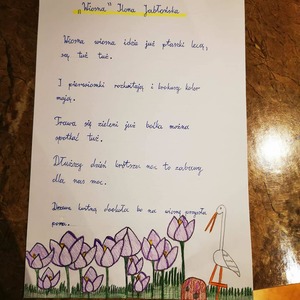 „Wiosna" Ilona Jabłońska
Wiosna wiosna idzie już ptaszki lecą,
są tuż tuż.
I pierwiosnki rozkwitają i krokusy kolor
mają.
Trawa się zieleni już boćka można
spotkać tuż.
Dłuższy dzień krótsza noc to zabawy
dla nas moc.
Drzewa kwitną dookoła bo na wiosnę przyszła
pora...